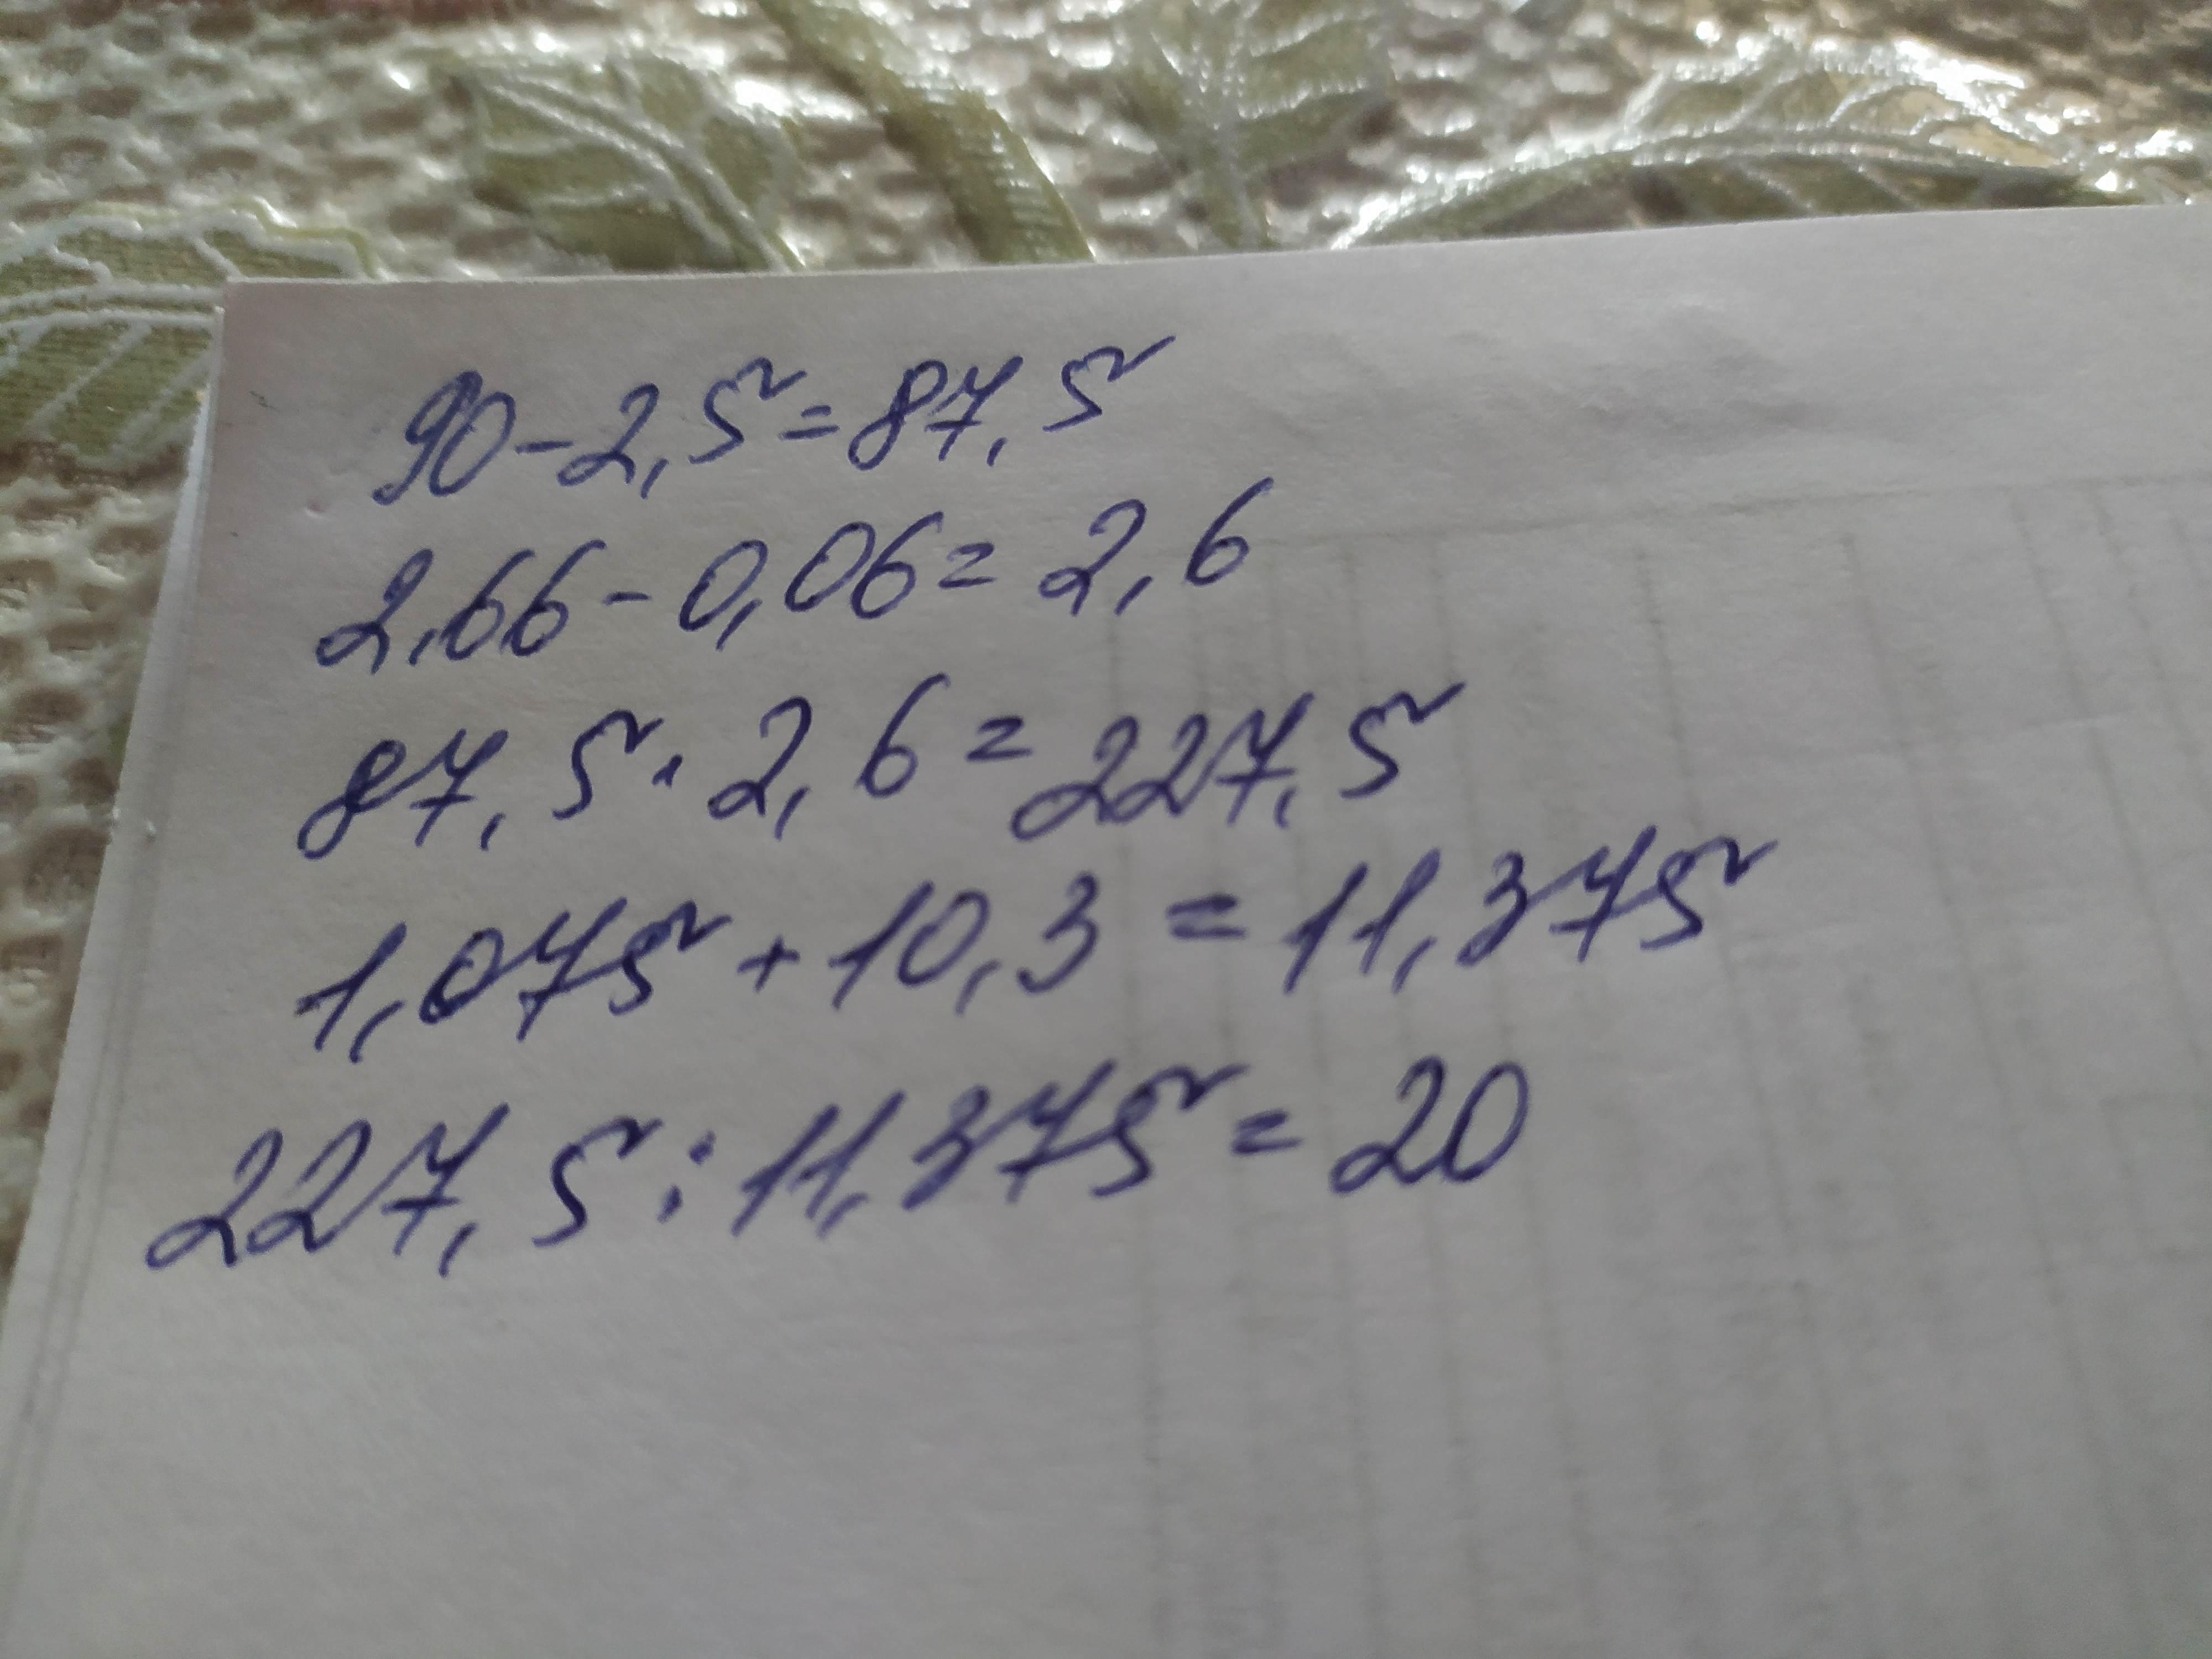 90-2,5=87,5
2,66-0,06=2,6
87,5·2,6=227,5
1,075+10,3=11,375
227,5:11,375=20